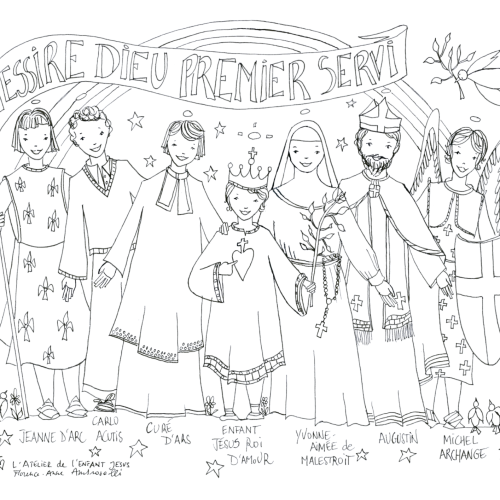 MESSIRE DIEU PREMIER SERVI
JEANNE D'ARC
CARLO
ACUTIS
CURÉ
D'ARS
ENFANT
JÉSUS ROI
D'AMOUR
YVONNE-
AIMÉE de
MALESTROIT
AUGUSTIN
MICHEL
ARCHANGE
L'ATELIER de L'ENFANT JESUS
Florence-Anne